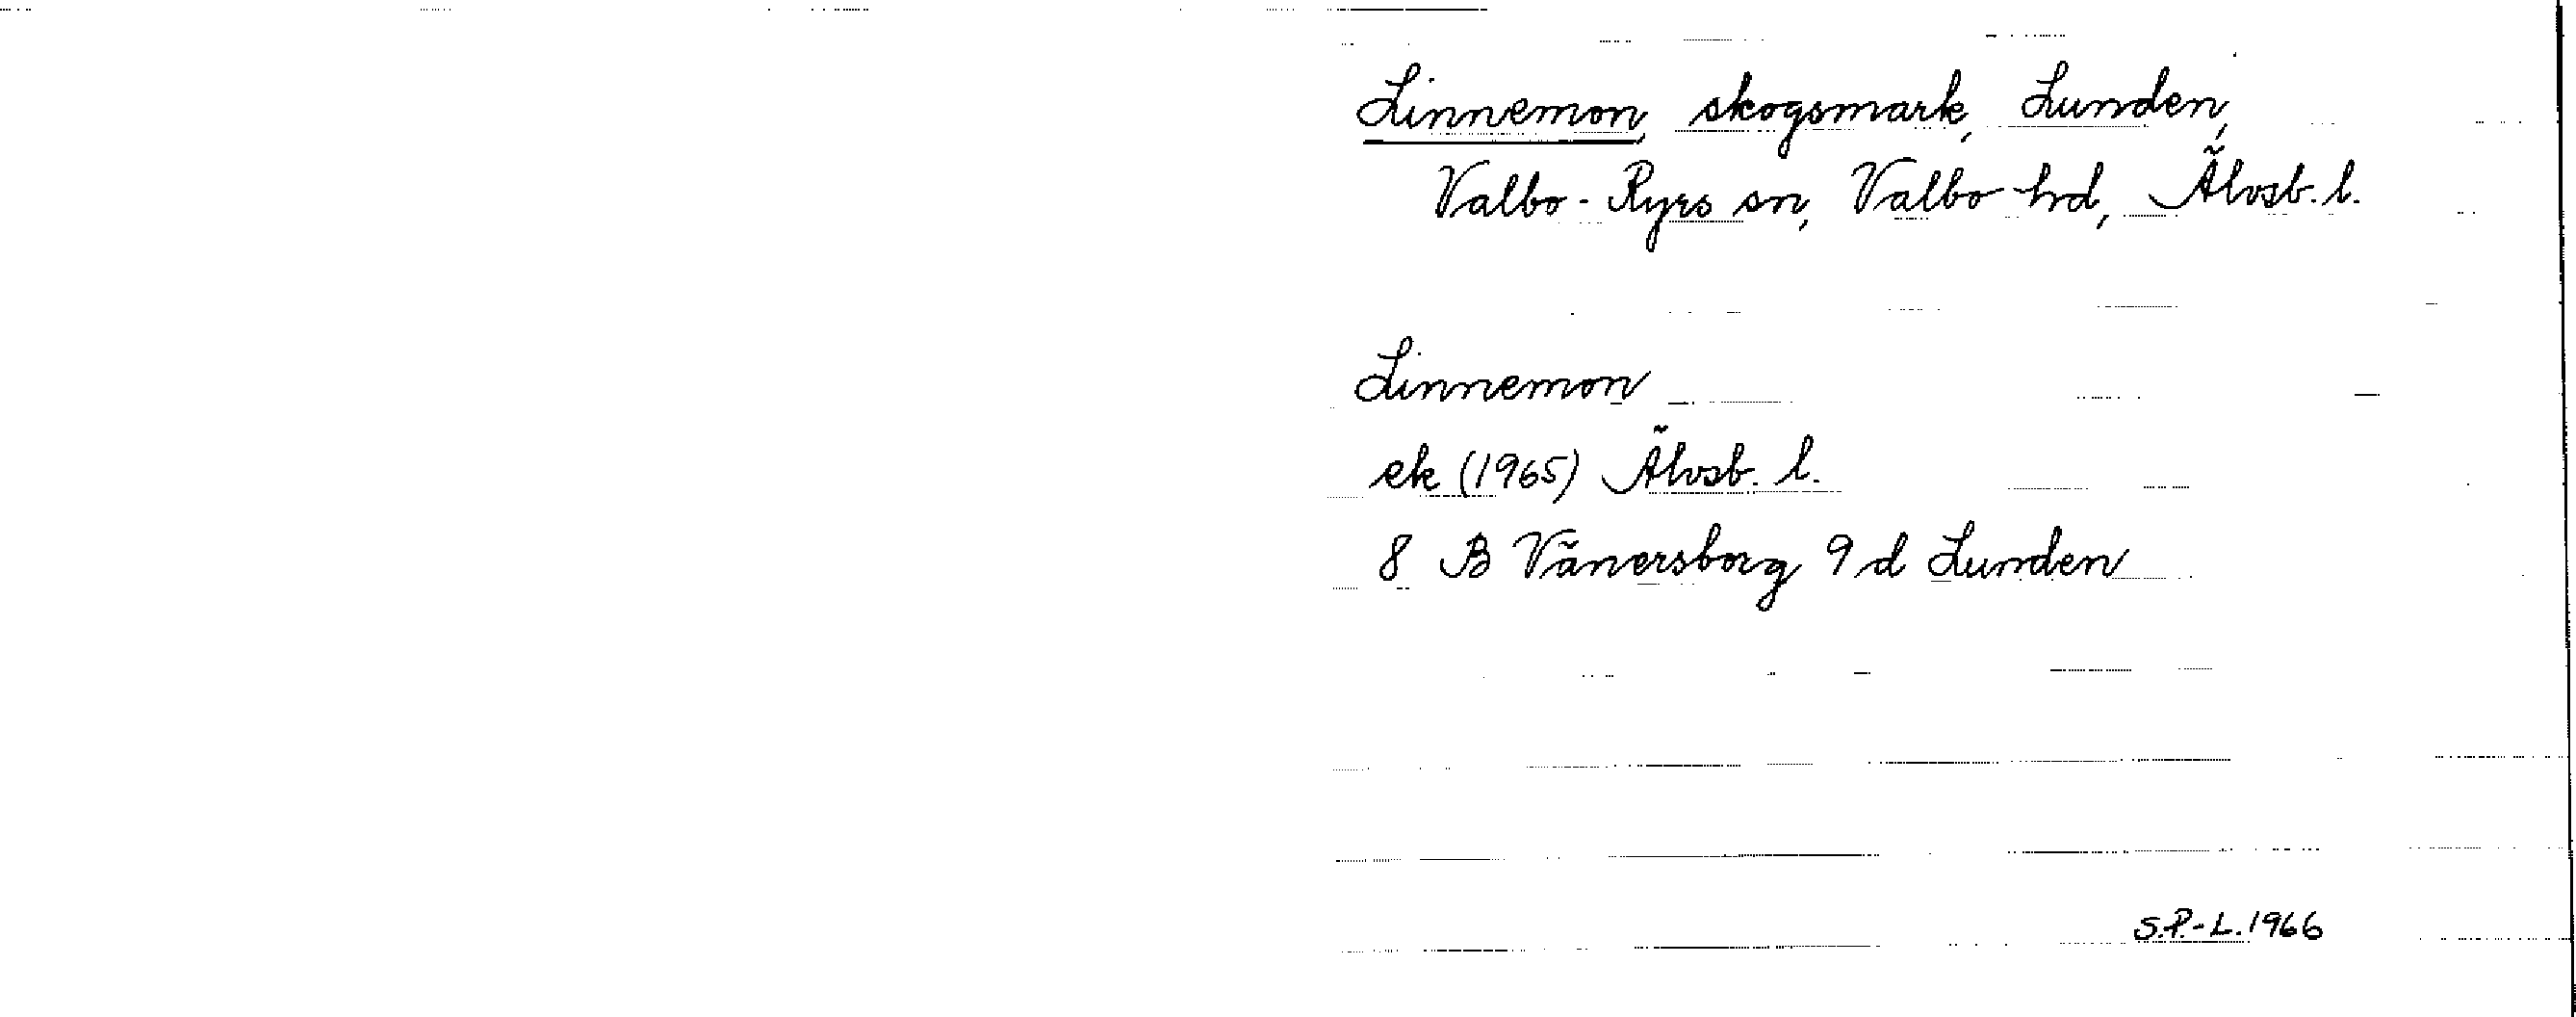 Linnemon, skogsmark, Lunden,
Valbo-Ryrs sn, Valbo hd, Älvsb. l.
Linnemon
ek (1965) Älvsb. l.
8 B Vänersborg 9 d Lunden
S.P.-L. 1966